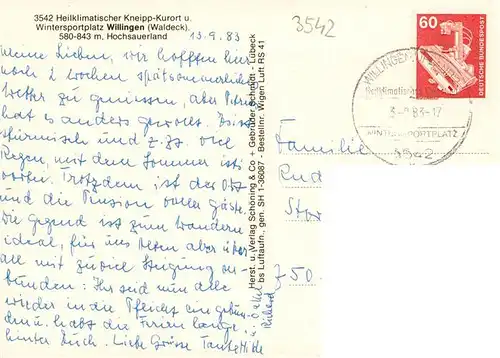 3542 Heilklimatischer Kneipp-Kurort u.
Wintersportplatz Willingen (Waldeck),
580-843 m, Hochsauerland
13.9.83
Meine Lieben, wir hofften hier
noch 2 Wochen spätsommerliches
Wetter zu geniessen, aber Petrus
hat es anders gewollt.
stürmisch und z. Zt. viel
Regen, mit dem Sommer ist
vorbei. Trotzdem ist der Ort
und die Pension voller Gäste.
Die Gegend ist zum Wandern
ideal, für uns Alten aber über
all mit zuviel Steigung ver
bunden. Ihr seid nun alle
wieder in die Pflicht eingebun
den u. habt die Ferien lange
hinter Euch. Liebe Grüsse Tante Hilde
u. Onkel
Richard
Herst. u. Verlag Schöning & Co + Gebrüder Schmidt - Lübeck
bs Luftaufn. gen. SH 1-36087 - Bestellnr. Wigen Luft RS 41
3542
60
DEUTSCHE BUNDESPOST
WILLINGEN
Heilklimatischer
83-17
WINTERSPORTPLATZ
3542
Familie
750